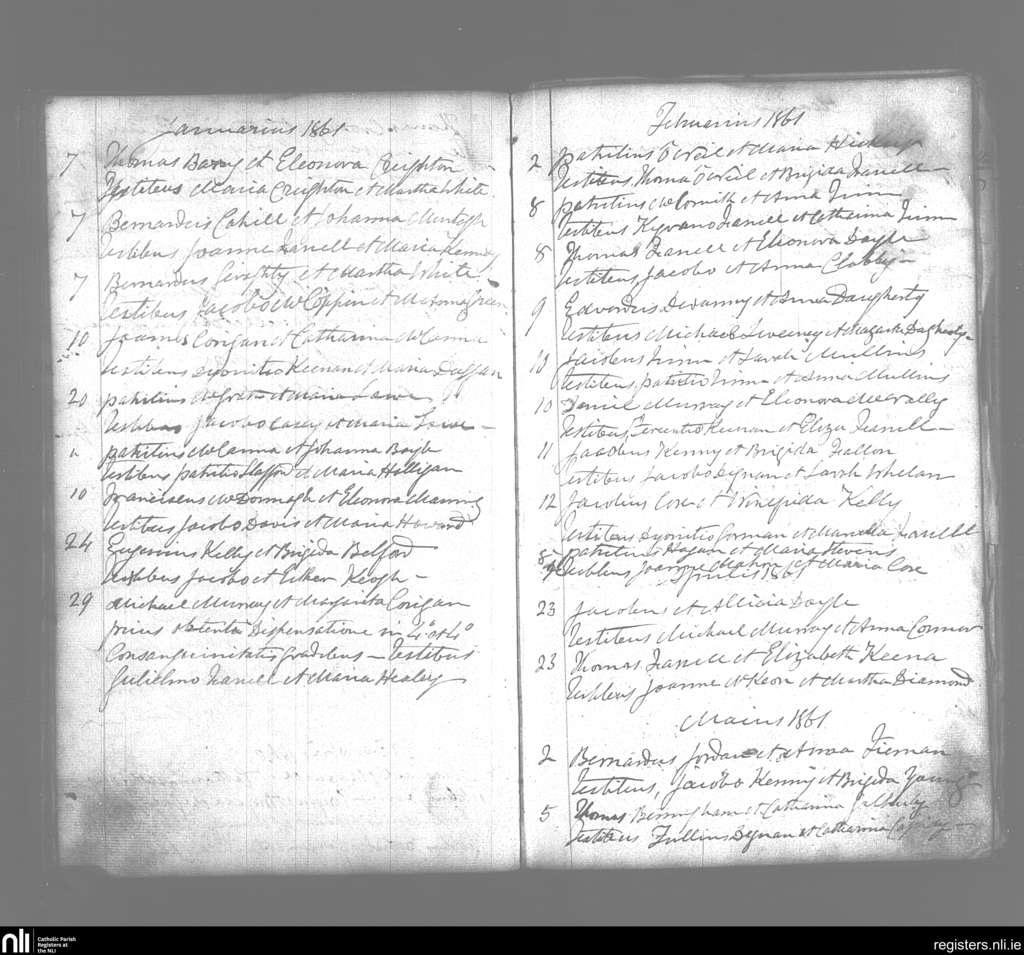 Januarius 1861
7 Thomas Barry et Eleonora Creighton
Testibus Maria Creighton et Martha White
7 Bernardus Cahill et Johanna Murtagh
Testibus Joanne Farrell et Maria Kenny
7 Bernardus Geraghty et Martha White
Testibus Jacobo
10 Joannes Corigan et Catharina McCanna
Testibus Dyonitio Keenan et Maria Duffan
20 Patritius et Maria
Testibus Jacobo Casey et Maria
Patritius McCanna et Johanna Boyle
Testibus Patritio Stafford et Maria Hilligan
10 Franciscus McDonnagh et Eleonora Manning
Testibus Jacobo Davis et Maria Howard
24 Eugenius Kelly et Brigida Belford
Testibus Jacobo et Ellen Keogh
29 Michael Murray et Margarita Corigan
prius obtenta Dispensatione in 4° et 4°
Consanguinitatis Gradibus – Testibus
Gulielmo Farrell et Maria Healey
Februarius 1861
2 Patritius O'Neil et Maria Hickey
Testibus Thoma O'Neil et Brigida Farrell
8 Patritius McCormick et Anna Finn
Testibus Kyrano Farrell et Catharina Finn
8 Thomas Farrell et Eleonora Doyle
Testibus, Jacobo et Anna Clabby
9 Edvardus Devanny et Anna Daugherty
Testibus Michael Sweeney et
10 Jacobus Finn et Sarah Mullins
Testibus, Patritio Finn et Anna Mullins
10 Daniel Murray et Eleonora McGrally
Testibus, Terentio Keenan et Eliza Farrell
11 Jacobus Kenny et Brigida Fallon
Testibus Jacobo Dignan et Sarah Whelan
12 Jacobus Coxe et Winefrida Kelly
Testibus Dyonitio Gorman et Marcella Farrell
8 Patritius Hogan et Maria Stevens
Testibus Joanne Mahon et Maria Coxe
Aprilis 1861
23 Jacobus et Allicia Doyle
Testibus Michael Murray et Anna Connor
23 Thomas Farrell et Elizabeth Keena
Testibus Joanne McKeon et Martha Diamond
Maius 1861
2 Bernardus Jordan et Anna Tiernan
Testibus, Jacobo Kenny et Brigida Young
5 Thomas Bermingham et Catharina
Testibus Dignan et Catharina
nli Catholic Parish
Registers at
the NLI
registers.nli.ie